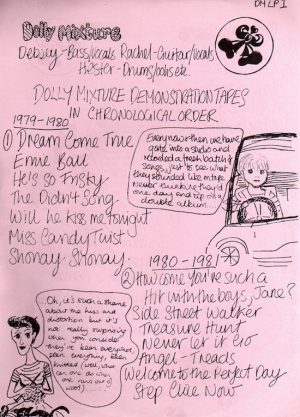 DMLP1
Dolly Mixture
Debsey-Bass/vocals Rachel-Guitar/vocals
Hester-Drums/voice etc.
DOLLY MIXTURE DEMONSTRATION TAPES
IN CHRONOLOGICAL ORDER
1979-1980
① Dream Come True
Ernie Ball
He's so Frisky
The Didn't Song
Will he kiss me Tonight
Miss Candy Twist
Shonay Shonay.
Every now & then we have
gone into a studio and
recorded a fresh batch of
songs, just to see what
they sounded like on tape
Never thinking they'd
one day end up on a
double album
1980-1981
② How come you're such a
Hit with the boys, Jane?
Side Street Walker
Treasure Hunt
Never let it Go
Angel-Treads
Welcome to the Perfect Day
Step Close Now
Oh, it's such a shame
about the hiss and
distortion but it's
not really surprising
when you consider
they've been everywhere,
seen everything, been
knitted (well, what
can one do when
one runs out of
wool)...